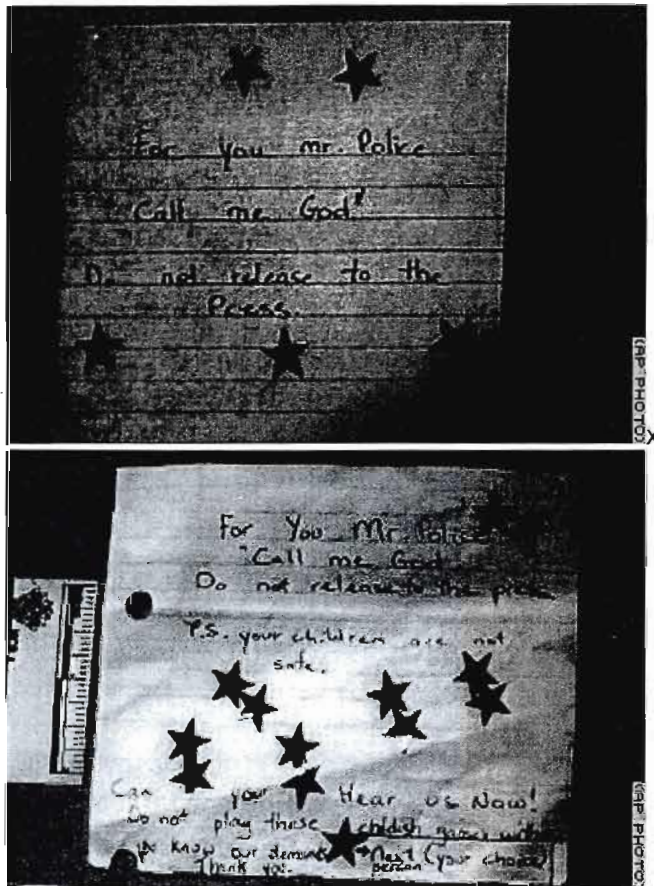 For you mr. Police
"Call me God"
Do not release to the
Press.
(AP PHOTO)
For You Mr. Police
"Call me God
Do not release to the press
P.S. your children are not
safe.
Can you Hear us Now!
Do not play these childish games with
You know our demands
Next (your choice)
person
Thank you.
(AP PHOTO)